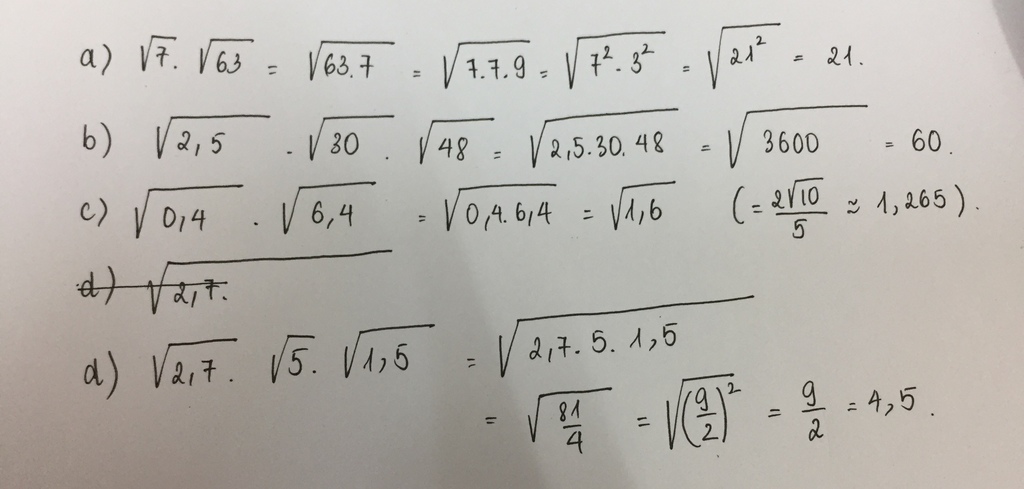 a) √7. √63 = √63.7 = √7.7.9 = √7².3² = √21² = 21.
b) √2,5 . √30 . √48 = √2,5.30.48 = √3600 = 60.
c) √0,4 . √6,4 = √0,4.6,4 = √1,6 (= 2√10/5 ≈ 1,265).
d) √2,7.
d) √2,7. √5. √1,5 = √2,7.5.1,5
= √81/4 = √(9/2)² = 9/2 = 4,5.